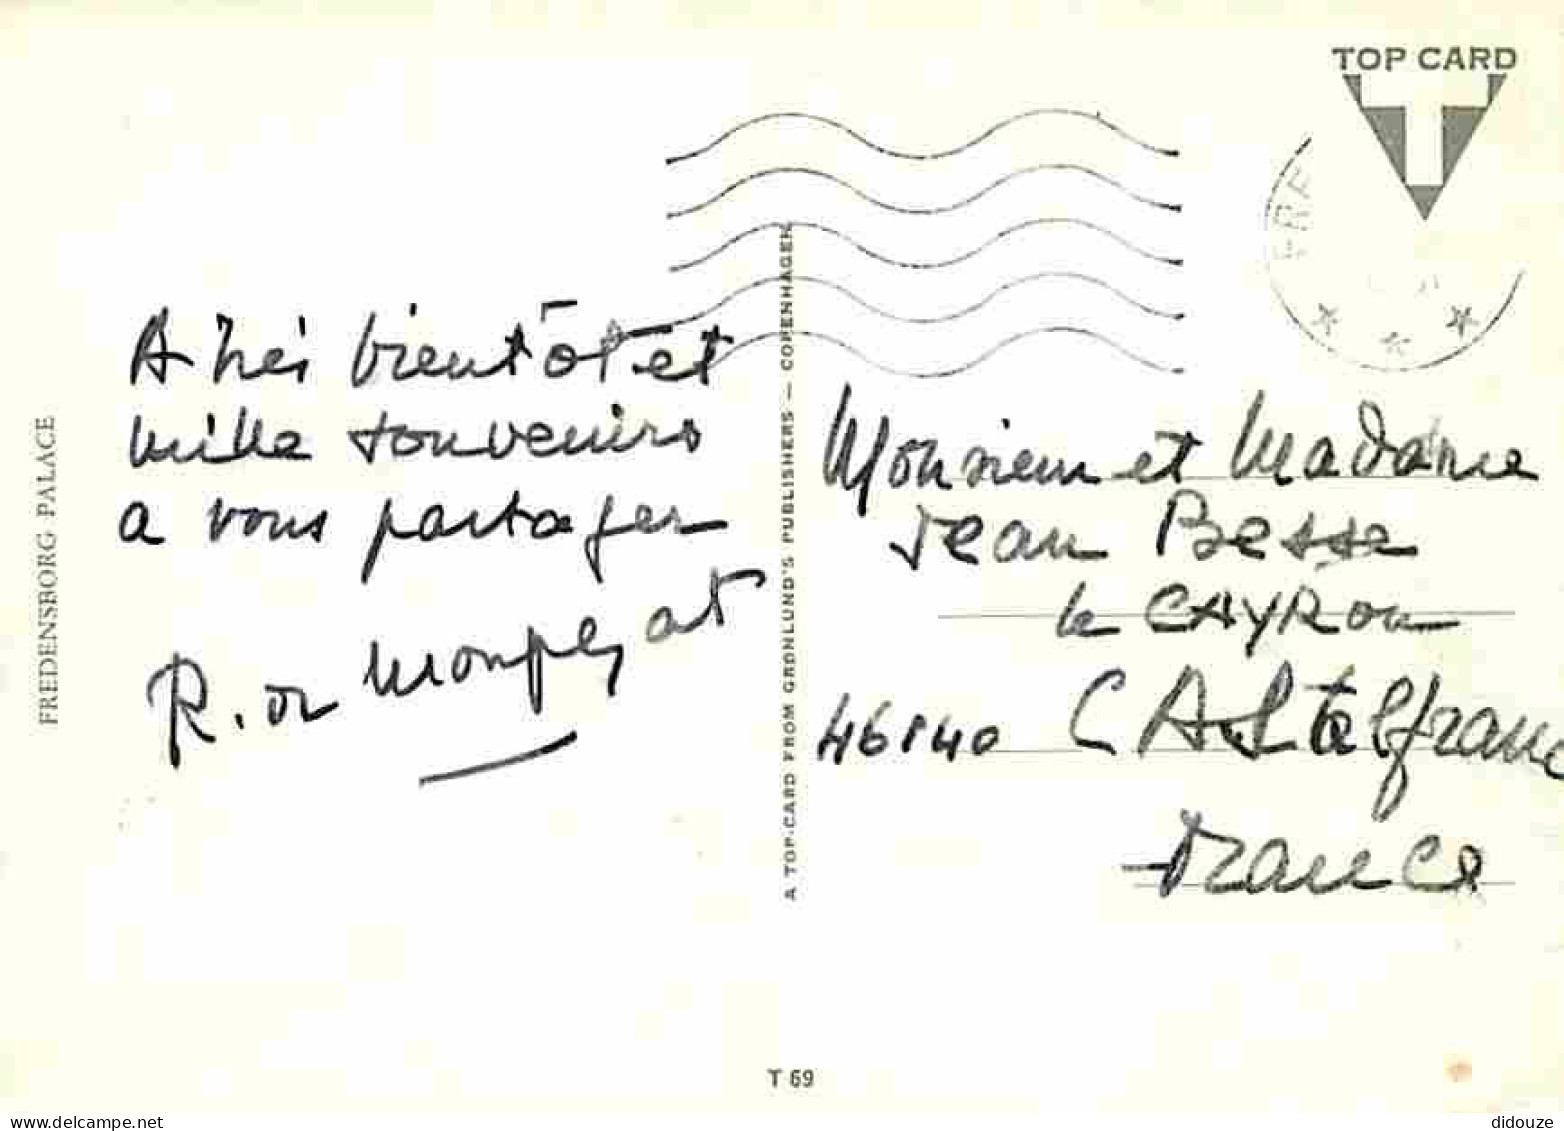 TOP CARD
T
FRE
FREDENSBORG PALACE
A très bientôt et
mille souvenirs
a vous partager
R. de Monpezat
A TOP-CARD FROM GRØNLUND'S PUBLISHERS — COPENHAGEN
Monsieur et Madame
Jean Besse
le CAYRou
46140 CAStelfranc
France
T 69
delcampe.net
didouze